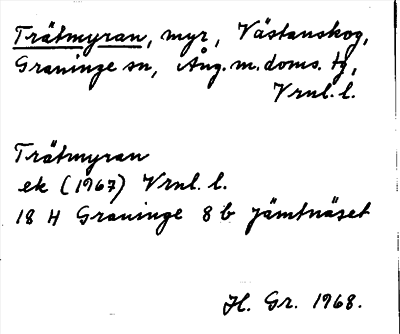 Trätmyran, myr, Västanskog,
Graninge sn, Ång. m. doms. tg,
Vrnl. l.
Trätmyran
ek (1967) Vrnl. l.
18 H Graninge 8 b Jämtnäset
H. Gr. 1968.